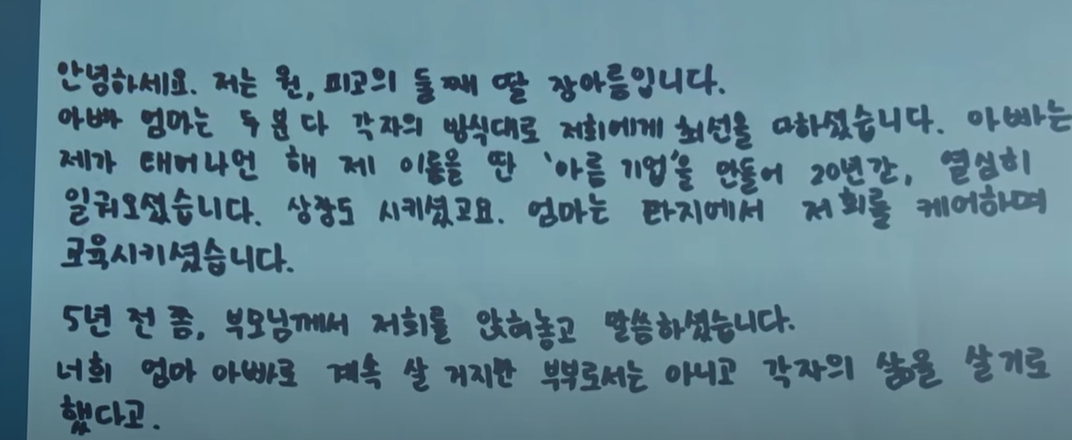 안녕하세요. 저는 원, 피고의 둘째 딸 장아름입니다.
아빠 엄마는 두 분 다 각자의 방식대로 저희에게 최선을 다하셨습니다. 아빠는
제가 태어나던 해 제 이름을 딴 '아름 기업'을 만들어 20년간, 열심히
일궈오셨습니다. 상장도 시키셨고요. 엄마는 타지에서 저희를 케어하며
교육시키셨습니다.
5년 전 쯤, 부모님께서 저희를 앉혀놓고 말씀하셨습니다.
너희 엄마 아빠로 계속 살 거지만 부부로서는 아니고 각자의 삶을 살기로
했다고.